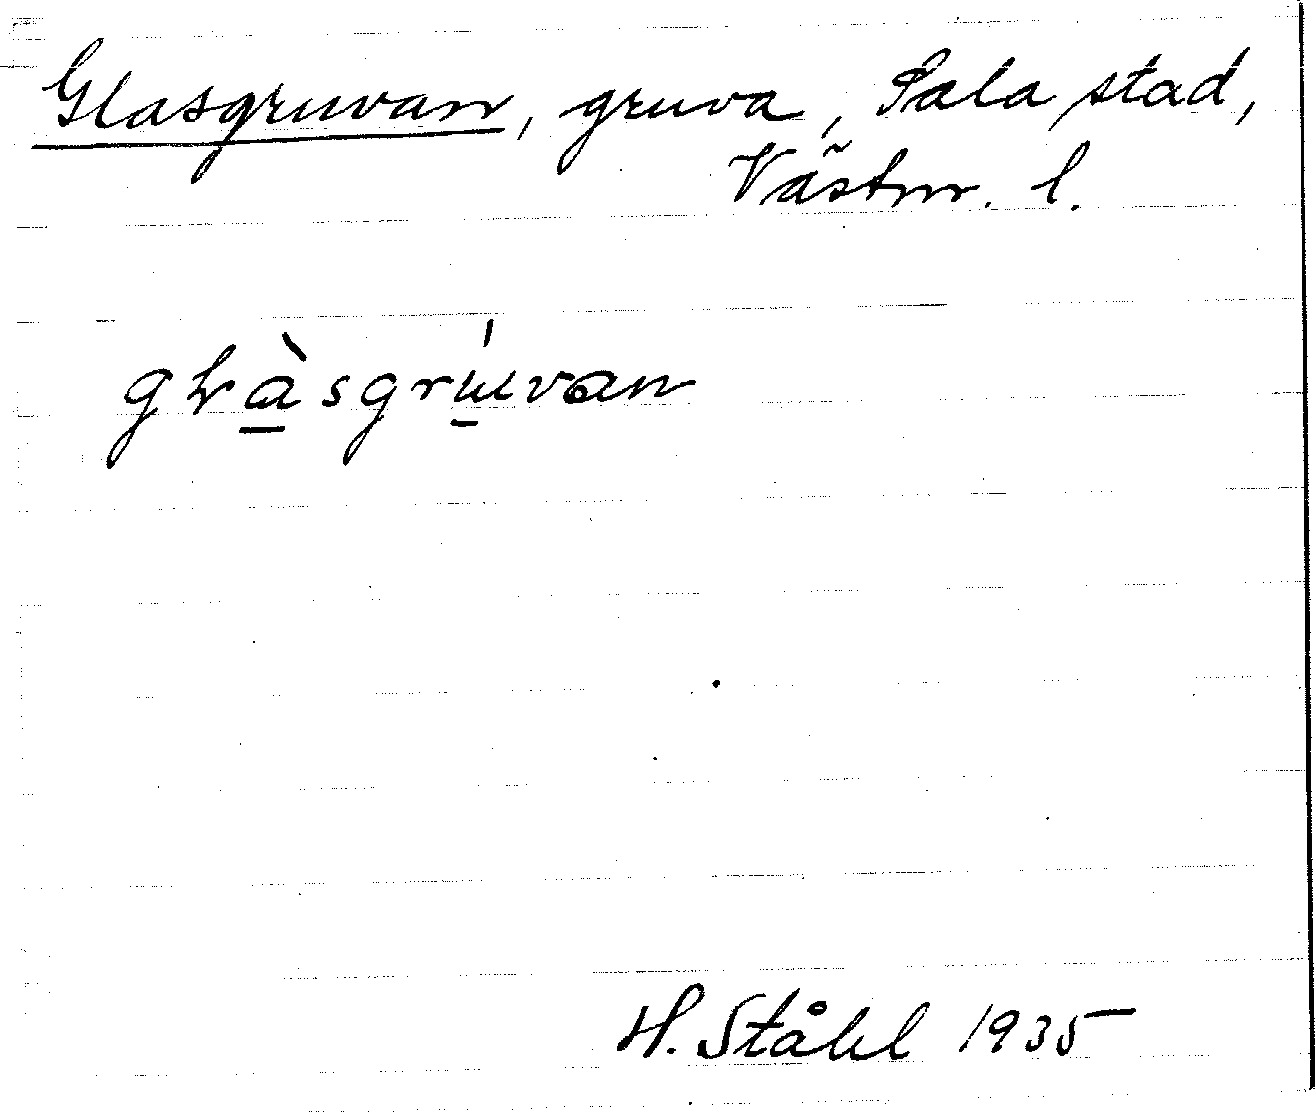 Glasgruvan, gruva, Sala stad,
Västm. l.
H. Ståhl 1935